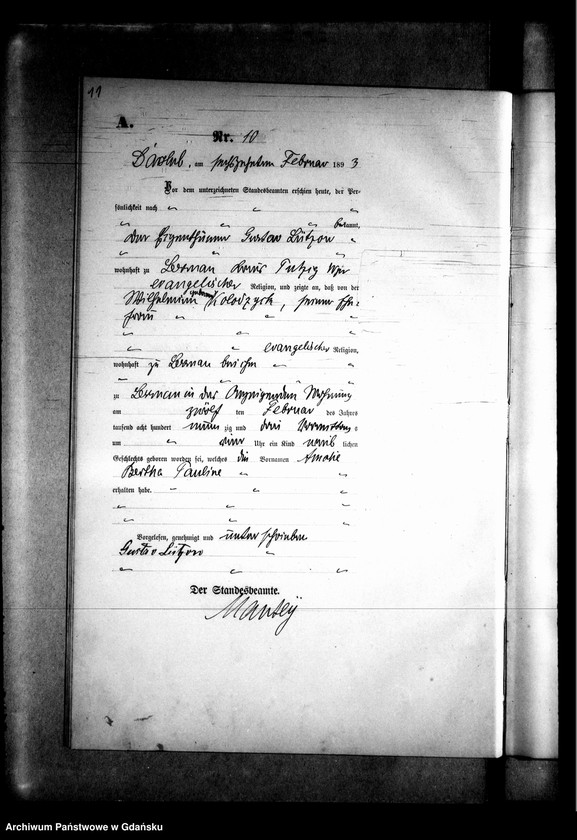 11
A.
Nr. 10
am sechszehnten Februar 1893
Vor dem unterzeichneten Standesbeamten erschien heute, der Per-
sönlichkeit nach
bekannt,
der Eigenthümer Gustav Lützow
wohnhaft zu Lessnau Kreis Putzig
evangelischer Religion, und zeigte an, daß von der
Wilhelmine geborenen Kolodzyck, seiner Ehe-
frau
evangelischer Religion,
wohnhaft zu Lessnau bei ihm
zu Lessnau in des Anzeigenden Wohnung
am zwölf ten Februar des Jahres
tausend acht hundert neun zig und drei Vormittags
um vier Uhr ein Kind weib lichen
Geschlechts geboren worden sei, welches die Vornamen Amalie
Bertha Pauline
erhalten habe.
Vorgelesen, genehmigt und unterschrieben
Gustav Lützow
Der Standesbeamte.
Archiwum Państwowe w Gdańsku